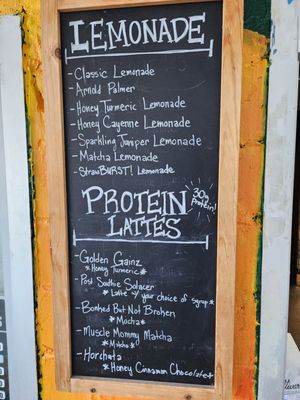 LEMONADE
- Classic Lemonade
- Arnold Palmer
- Honey Turmeric Lemonade
- Honey Cayenne Lemonade
- Sparkling Juniper Lemonade
- Matcha Lemonade
- StrawBURST! Lemonade
PROTEIN
LATTES
30g
Protein!
- Golden Gainz
*Honey Turmeric*
- Post Saddie Solacer
*Latte w/ your choice of syrup*
- Bonked But Not Broken
*Mocha*
- Muscle Mommy Matcha
*Matcha*
- Horchata
*Honey Cinnamon Chocolate*